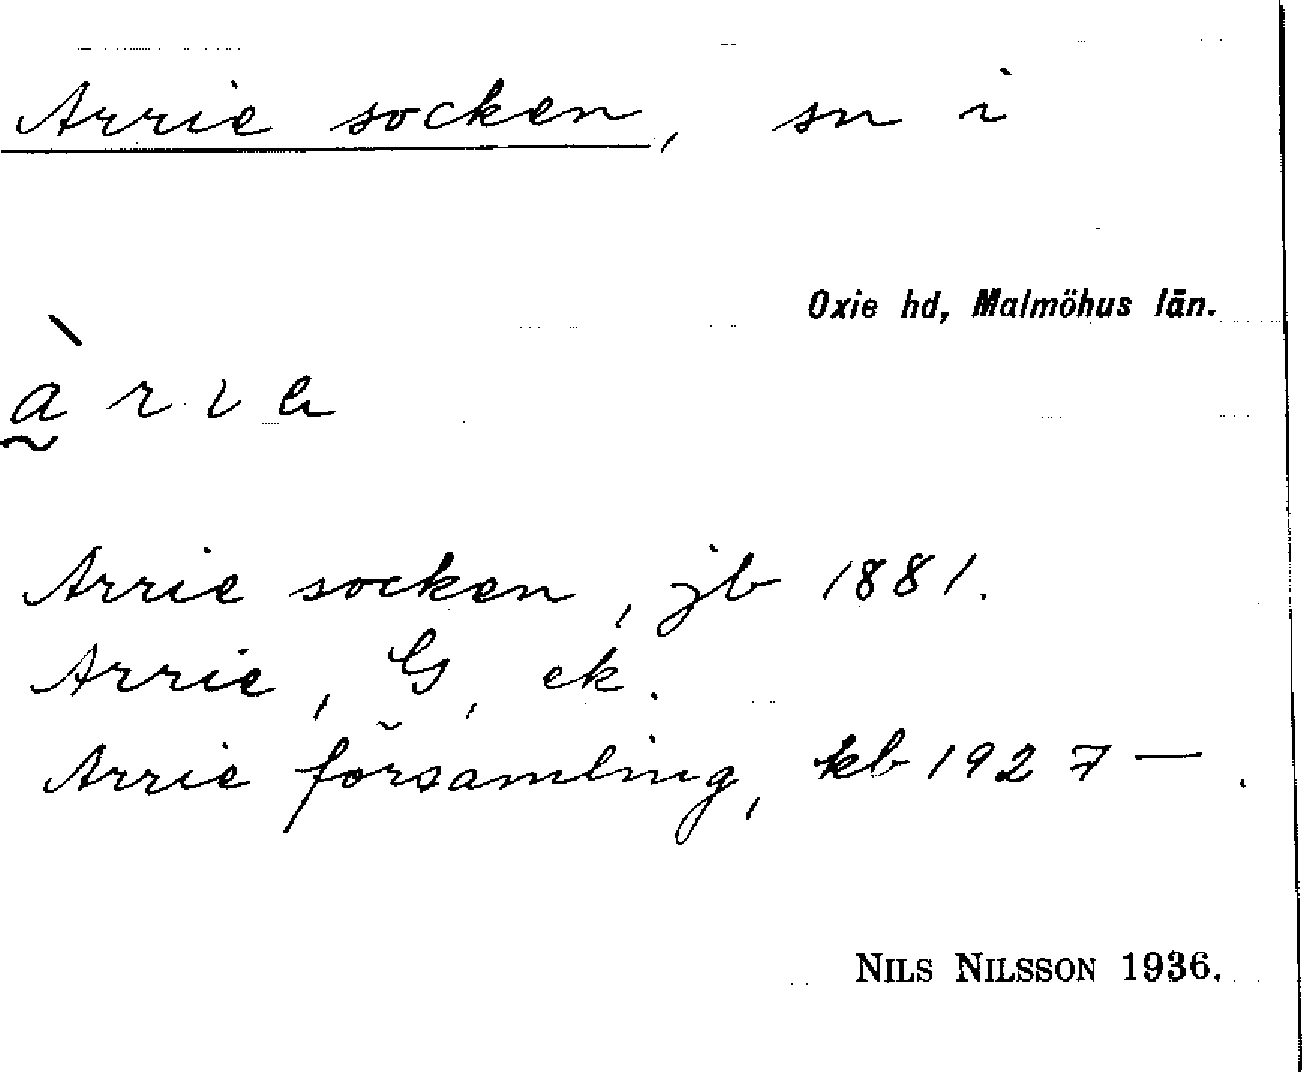 Arrie socken, sn i
Oxie hd, Malmöhus län.
Arrie socken, jb 1881.
Arrie, G, ek.
Arrie församling, kb 1927 — .
NILS NILSSON 1936.